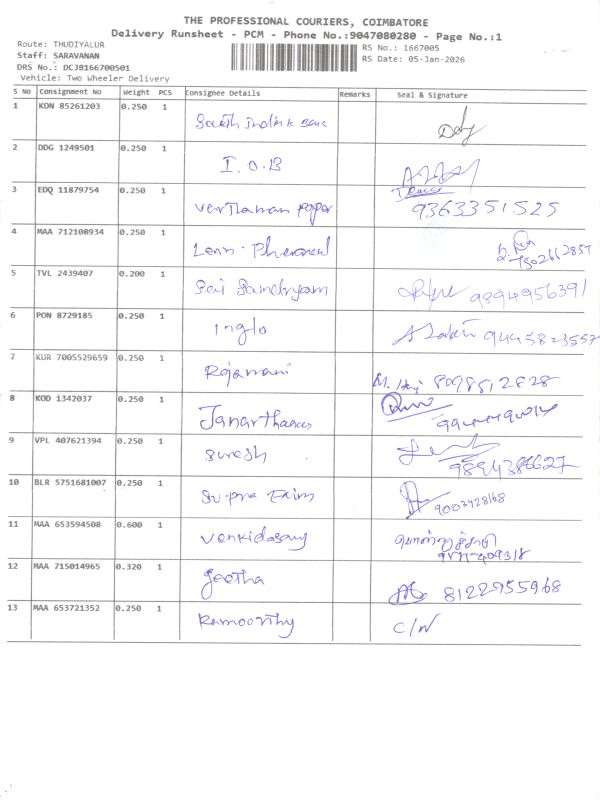 THE PROFESSIONAL COURIERS, COIMBATORE
Delivery Runsheet - PCM - Phone No.:9047080280 - Page No.:1
Route: THUDIYALUR
Staff: SARAVANAN
DRS No.: DCJB166700501
Vehicle: Two Wheeler Delivery
RS No.: 1667005
RS Date: 05-Jan-2026
S No Consignment No Weight PCS Consignee Details Remarks Seal & Signature
1 KON 85261203 0.250 1 South
2 DDG 1249501 0.250 1 I.O.B
3 EDQ 11879754 0.250 1 9363351525
4 MAA 712108934 0.250 1
5 TVL 2439407 0.200 1 Sai 9894956391
6 PON 8729185 0.250 1 Inglo 9445823557
7 KUR 7005529659 0.250 1 Rajamani 8098512828
8 KOD 1342037 0.250 1
9 VPL 407621394 0.250 1 Suresh
10 BLR 5751681007 0.250 1 Supra 9003428168
11 MAA 653594508 0.600 1 Venkidasamy
12 MAA 715014965 0.320 1 Geetha 8122955968
13 MAA 653721352 0.250 1 Ramoorthy C/N